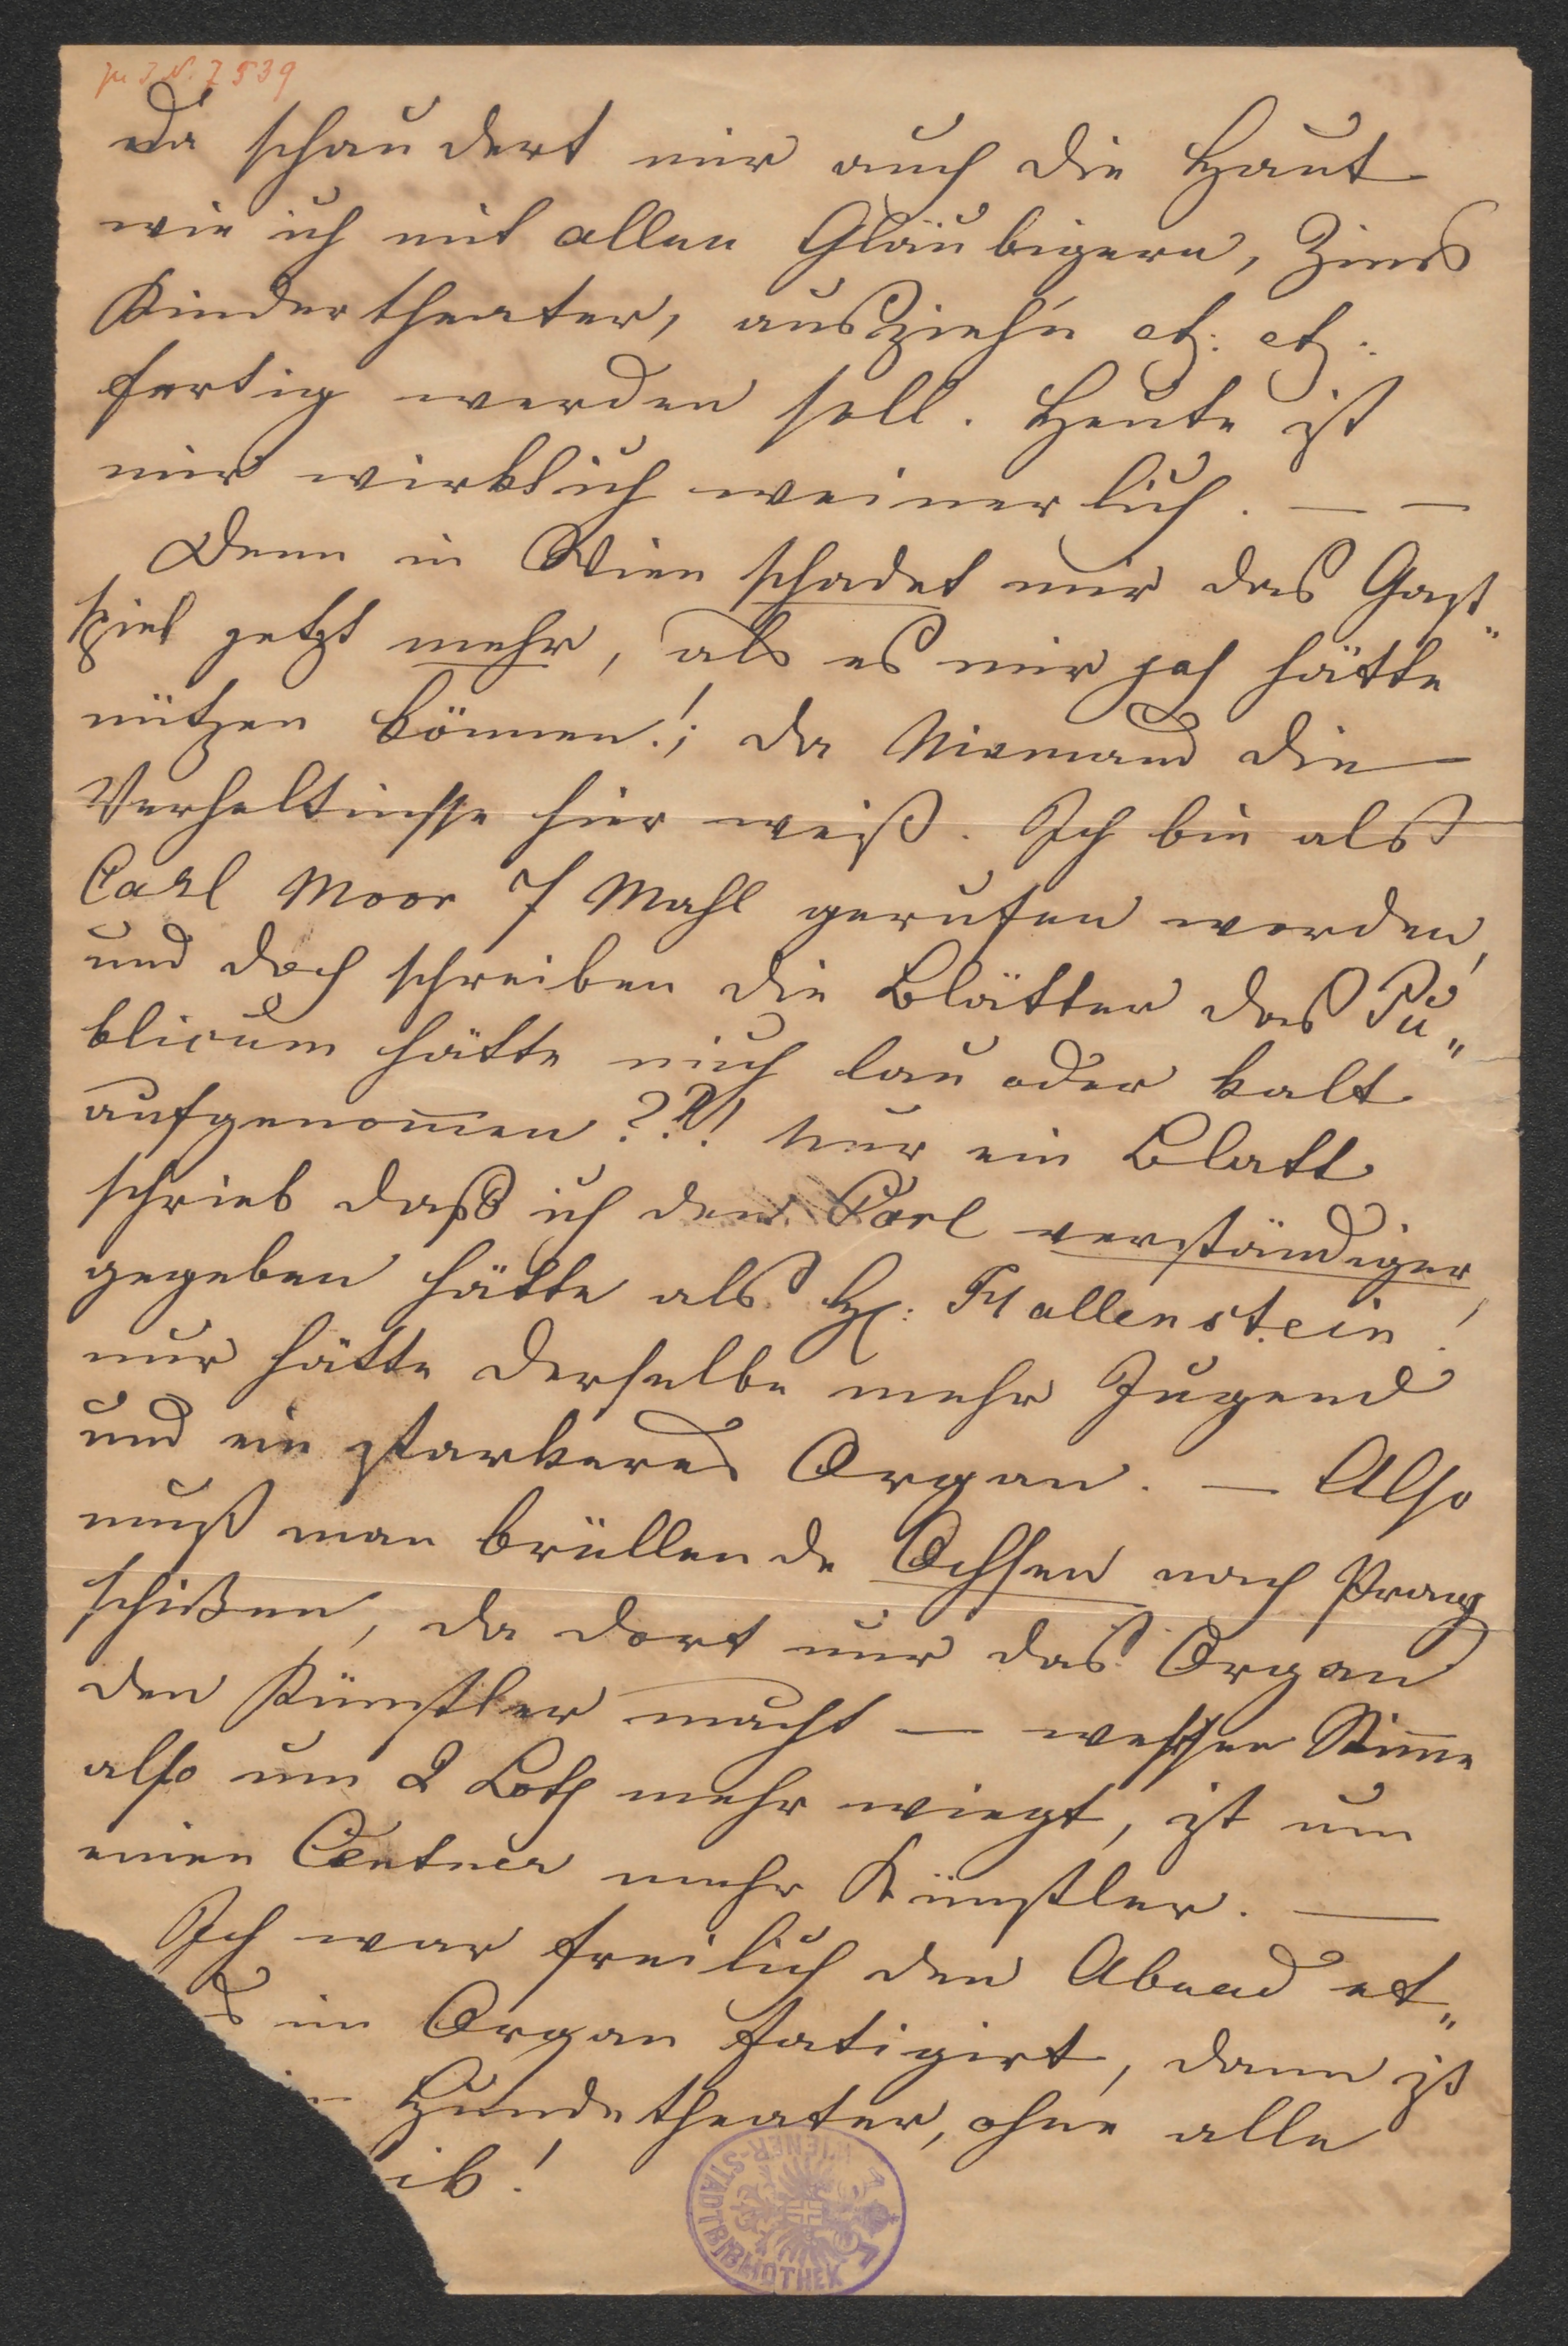 zu I.N. 7539
Da schaudert mir auch die Haut
wie ich mit allen Gläubigern, Zins
Kindertheater, ausziehn etz: etz:
fertig werden soll. Heute ist
mir wirklich weinerlich. — —
Denn in Wien schadet mir das Gast„
spiel jetzt mehr, als es mir jah hätte
nützen können!; da Niemand die
Verhaltnisse hier weiß. Ich bin als
Carl Moor 7 Mahl gerufen worden,
und doch schreiben die Blätter das Pu„
blicum hätte mich lau oder kalt
aufgenom̅en??! Nur ein Blatt
schrieb daß ich den Carl verständiger
gegeben hätte als H: Hallenstein!
nur hätte derselbe mehr Jugend
und ein starkeres Organ. — Also
muß man brüllende Ochsen nach Prag
schicken, da dort nur das Organ
den Künstler macht — wessen Stim̅e
also um 2 Loth mehr wiegt, ist um
einen Centner mehr Künstler. —
Ich war freilich den Abend et„
s im Organ fatigirt, dann ist
Hundetheater, ohne alle
ib!
WIENER-STADTBIBLIOTHEK